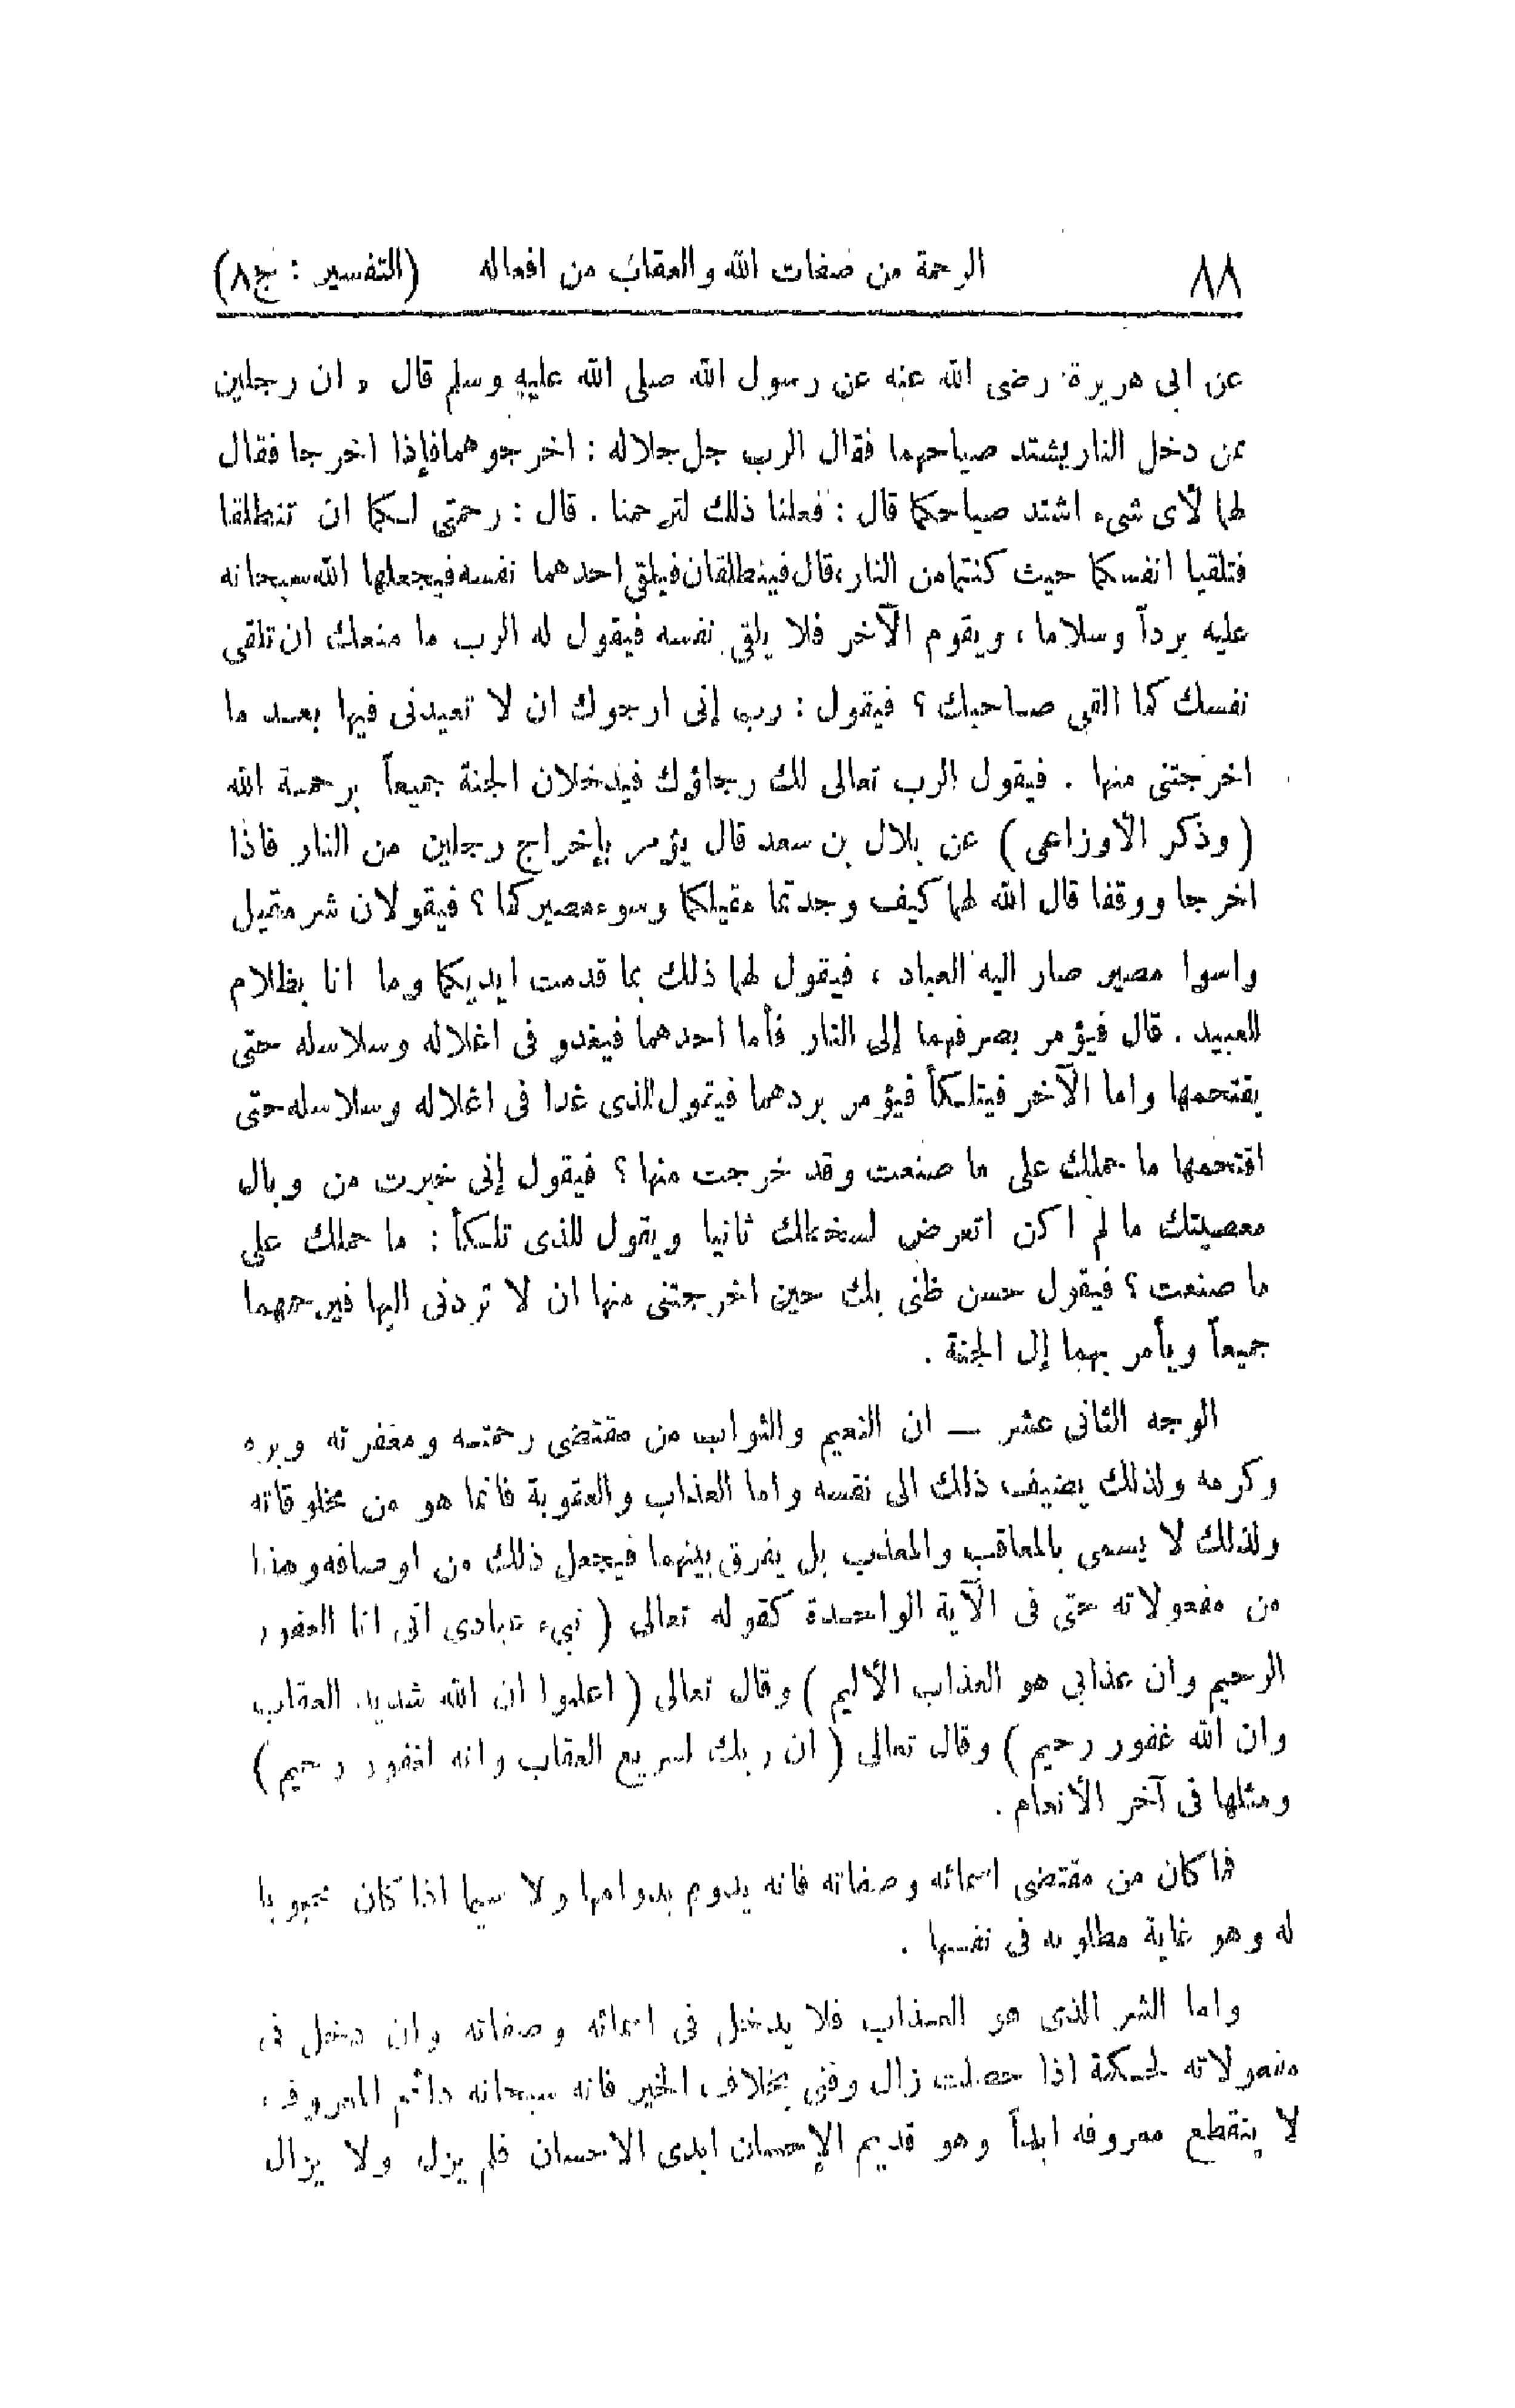 ٨٨ الرحمة من صفات الله والعقاب من افعاله (التفسير : ج٨)
عن ابى هريرة رضى الله عنه عن رسول الله صلى الله عليه وسلم قال « ان رجلين
ممن دخل النار يشتد صياحهما فقال الرب جل جلاله : اخرجوهما فإذا اخرجا فقال
لهما لأى شىء اشتد صياحكما قال : فعلنا ذلك لترحمنا . قال : رحمتى لكما ان تنطلقا
فتلقيا انفسكما حيث كنتما من النار ، قال فينطلقان فيلقى احدهما نفسه فيجعلها الله سبحانه
عليه برداً وسلاما ، ويقوم الآخر فلا يلقى نفسه فيقول له الرب ما منعك ان تلقى
نفسك كما القى صاحبك ؟ فيقول : رب إنى ارجوك ان لا تعيدنى فيها بعد ما
اخرجتنى منها . فيقول الرب تعالى لك رجاؤك فيدخلان الجنة جميعاً برحمة الله
( وذكر الأوزاعى ) عن بلال بن سعد قال يؤمر بإخراج رجلين من النار فاذا
اخرجا ووقفا قال الله لهما كيف وجدتما مقيلكما وسوء مصيركما ؟ فيقولان شر مقيل
واسوا مصير صار اليه العباد ، فيقول لهما ذلك بما قدمت ايديكما وما انا بظلام
للعبيد . قال فيؤمر بصرفهما إلى النار فأما احدهما فيغدو فى اغلاله وسلاسله حتى
يقتحمها واما الآخر فيتلكأ فيؤمر بردهما فيقول للذى غدا فى اغلاله وسلاسله حتى
اقتحمها ما حملك على ما صنعت وقد خرجت منها ؟ فيقول إنى خبرت من وبال
معصيتك ما لم اكن اتعرض لسخطك ثانيا ويقول للذى تلكأ : ما حملك على
ما صنعت ؟ فيقول حسن ظنى بك حين اخرجتنى منها ان لا تردنى اليها فيرحمهما
جميعاً ويأمر بهما إلى الجنة .
الوجه الثانى عشر — ان النعيم والثواب من مقتضى رحمته ومغفرته وبره
وكرمه ولذلك يضيف ذلك الى نفسه واما العذاب والعقوبة فانما هو من مخلوقاته
ولذلك لا يسمى بالمعاقب والمعذب بل يفرق بينهما فيجعل ذلك من اوصافه وهذا
من مفعولاته حتى فى الآية الواحدة كقوله تعالى ( نبىء عبادى انى انا الغفور
الرحيم وان عذابى هو العذاب الأليم ) وقال تعالى ( اعلموا ان الله شديد العقاب
وان الله غفور رحيم ) وقال تعالى ( ان ربك لسريع العقاب وانه لغفور رحيم )
ومثلها فى آخر الأنعام .
فما كان من مقتضى اسمائه وصفاته فانه يدوم بدوامها ولا سيما اذا كان محبوبا
له وهو غاية مطلوبه فى نفسها .
واما الشر الذى هو العذاب فلا يدخل فى اسمائه وصفاته وان دخل فى
مفعولاته لحكمة اذا حصلت زال وفنى بخلاف الخير فانه سبحانه دائم المعروف ،
لا ينقطع معروفه ابداً وهو قديم الإحسان ابدى الاحسان فلم يزل ولا يزال